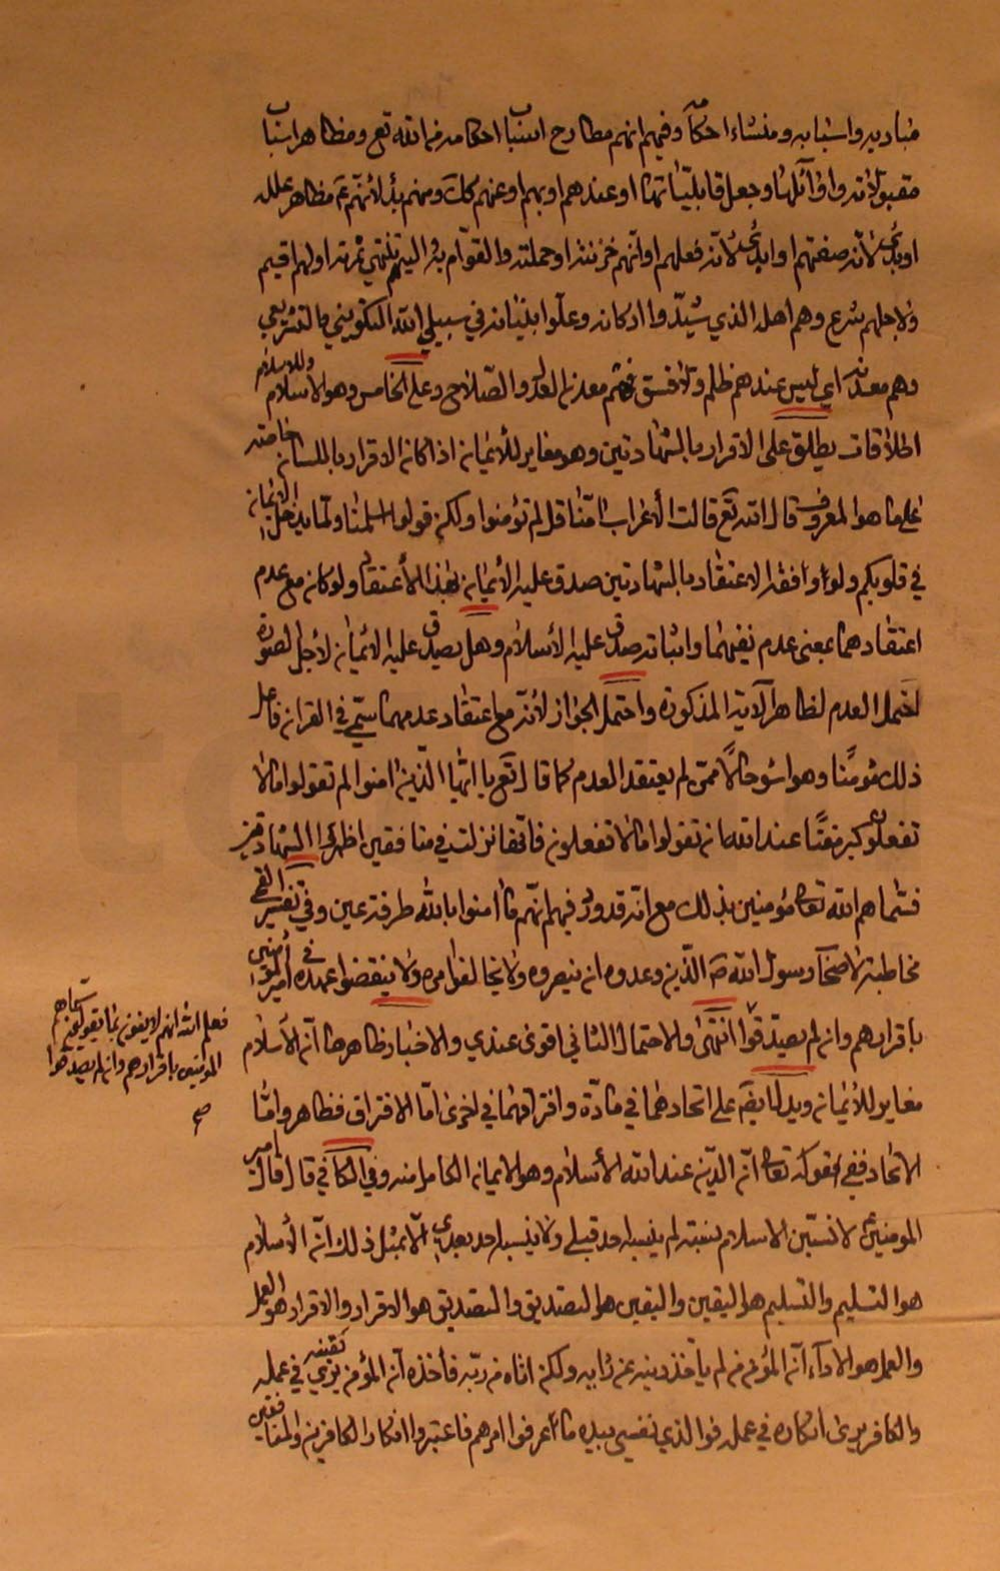 مباديه واسبابه ومنشاء احكامه وفيهم انهم مطارح اسباب احكامه من الله تع ومظاهر اسباب
مقبولاته واوائلها وجعل قابليّاتها او عندهم او بهم او عنهم كلّ ومنهم بدأ لانهم عم مظاهر علل
او بدئ لانه صفتهم او ابدئ لانه فعلهم او انهم خزنته او حملته والقوّام به او اليهم تنتهي ثمرته او لهم اقيم
ولاجلهم شرع وهم اهله الذي شيّدوا اركانه وعلّوا بنيانه في سبيلي الله التكويني والتشريعي
وهم معدنه اي ليس عندهم ظلم ولا فسق فهم معدن العدل والصّلاح وعلى الخامس وهو الاسلام وللاسلام
اطلاقات يطلق على الاقرار بالشهادتين وهو مغاير للأيمان اذا كان الاقرار باللسان خاصة
على ما هو المعروف قال الله تع قالت الأعراب امنّا قل لم تؤمنوا ولكن قولوا اسلمنا ولما يدخل الايمان
في قلوبكم ولو وافقه الاعتقاد بالشهادتين صدق عليه الأيمان بهذا الأعتقاد ولو كان مع عدم
اعتقادهما بمعنى عدم نفيهما واثباته صدق عليه الأسلام وهل يصدق عليه الايمان لاجل الصورة
احتمل العدم لظاهر الآية المذكورة واحتمل الجواز لأنه مع اعتقاد عدمهما سمّي في القران فاعل
ذلك مؤمنا وهو اسوء حالا ممن لم يعتقد العدم كما قال تع يا ايها الّذين امنوا لم تقولوا ما لا
تفعلون كبر مقتا عند الله ان تقولوا ما لا تفعلون فانها نزلت في منافقين اظهروا الشهادتين
فسماهم الله تعالى مؤمنين بذلك مع انه قد ورد فيهم انهم ما امنوا بالله طرفة عين وفي تفسير القمي
مخاطبة لاصحاب رسول الله ص الّذين وعدوه ان ينصروه ولا يخالفوا امره ولا ينقضوا عهده في امير المؤمنين
فعلم الله انهم لا يفون بما يقولون وقد سماهم
المؤمنين باقرارهم وان لم يصدقوا
صح
باقرارهم وان لم يصدّقوا انتهى والاحتمال الثاني اقوى عندي والاخبار ظاهرها انّ الاسلام
مغاير للأيمان ويدل بعضها على اتحادهما في مادّة وافتراقهما في اخرى امّا الافتراق فظاهر وامّا
الاتحاد ففي قوله تعالى انّ الدّين عند الله الأسلام وهو الايمان الكامل منه وفي الكافي قال قال امير
المومنين ع لانسبنّ الاسلام نسبة لم ينسبه احد قبلي ولا ينسبه احد بعدي الّا بمثل ذلك انّ الأسلام
هو التسليم والتسليم هو اليقين واليقين هو التصديق والتصديق هو الاقرار والاقرار هو العمل
والعمل هو الاداء انّ المؤمن من لم يأخذ دينه عن رايه ولكن اتاه من ربّه فأخذه انّ المؤمن يرى يقينه في عمله
والكافر يرى انكاره في عمله فوالذي نفسي بيده ما عرفوا امرهم فاعتبروا انكار الكافرين والمنافقين